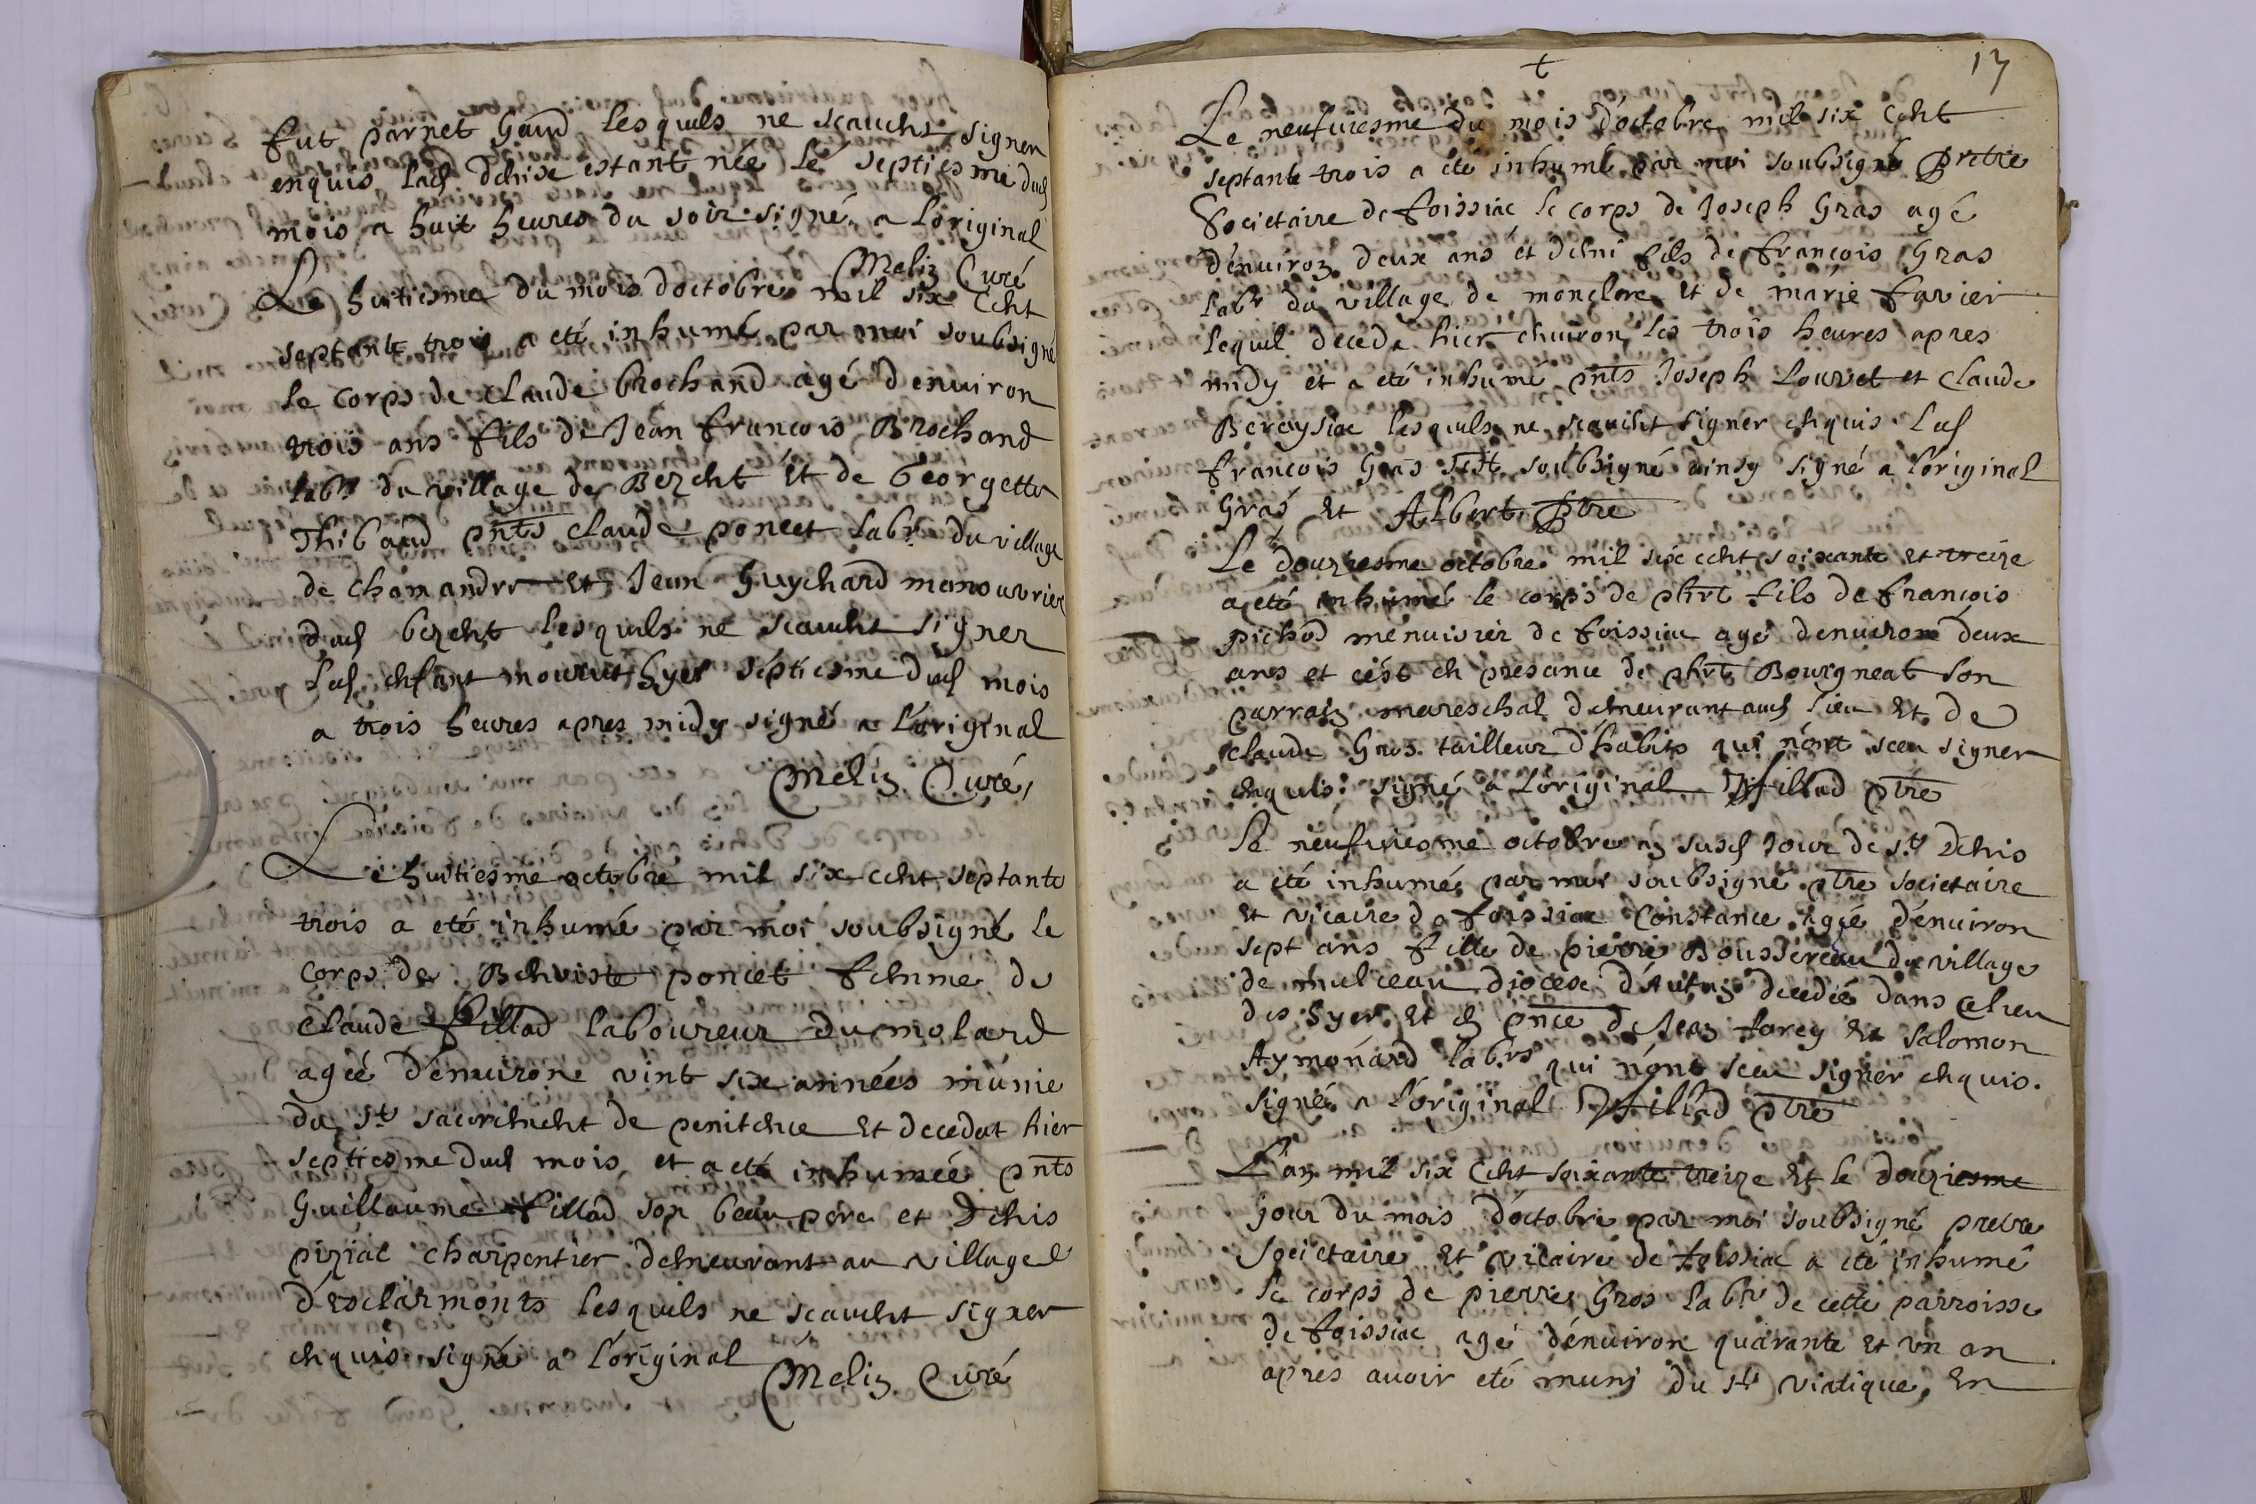 fut parnet Gaud lesquels ne scauent signer
enquis lad denise estant née le septiesme dud
mois a huit heures du soir signé a l'original
Melin Curé
Le huitiesme du mois doctobre mil six cent
septante trois a eté inhumé par moi soubsigné
le corps de claude brochand agé denuiron
trois ans fils de Jean francois Brochand
labr du village de Bezent Et de Georgette
Thibaud pnts claude poncet labr du village
de chamandre Et Jean Guychard manouvrier
dud bezent lesquels ne scauent signer
led enfant mourut hyer septiesme dud mois
a trois heures apres midy signé a l'original
Melin Curé,
Le huitiesme octobre mil six cent septante
trois a eté inhumé par moi soubsigné le
corps de Benoiste poncet femme de
claude fillad laboureur du molard
agée d'enuirone vint six années munie
du st sacrement de penitence Et decedat hier
septiesme dud mois et a eté inhumée pnts
Guillaume fillad son beau pere et Denis
piziat charpentier demeurant au village
d'esclarmonts lesquels ne scauent signer
enquis signé a l'original
Melin Curé
17
Le neufuiesme du mois d'octobre mil six cent
septante trois a eté inhumé par moi soubsigné pretre
Societaire de foissiac le corps de Joseph Gras agé
d'enuiron deux ans et demi fils de françois Gras
labr du village de monclere Et de marie favier
lequel deceda hier enuiron les trois heures apres
midy et a eté inhumé pnts Joseph Louvet et claude
Bereysiac lesquels ne scauent signer enquis led
francois Gras s'est soubsigné ainsy signé a l'original
Gras Et Albert ptre
Le douziesme octobre mil six cent soixante Et treize
a eté inhumé le corps de phrt fils de francois
pichod menuisier de foissiac agé denuiron deux
ans et cést en presance de phrt Bourgneat son
parrain mareschal demeurant aud lieu Et de
claude Gros tailleur d'habits qui nónt sceu signer
enquis signé a l'original fillad ptre
Le neufuiesme octobre an susd Jour de st Denis
a eté inhumée par moi soubsigné ptre societaire
Et vicaire de foissiac Constance agée d'enuiron
sept ans fille de pierre Boussereau du village
de mulceau diocese d'Autun decedée dans ce lieu
des hyer Et en pnce de Jean forey Et Salomon
Aymonard labrs qui nónt sceu signer enquis.
signé a l'original fillad ptre
L'an mil six cent soixante treize Et le douziesme
jour du mois d'octobre par moi soubsigné pretre
societaire Et vicaire de foissiac a eté inhumé
le corps de pierre Gros labr de cette parroisse
de foissiac agé d'enuiron quarante Et un an
apres auoir eté muni du st viatique, En